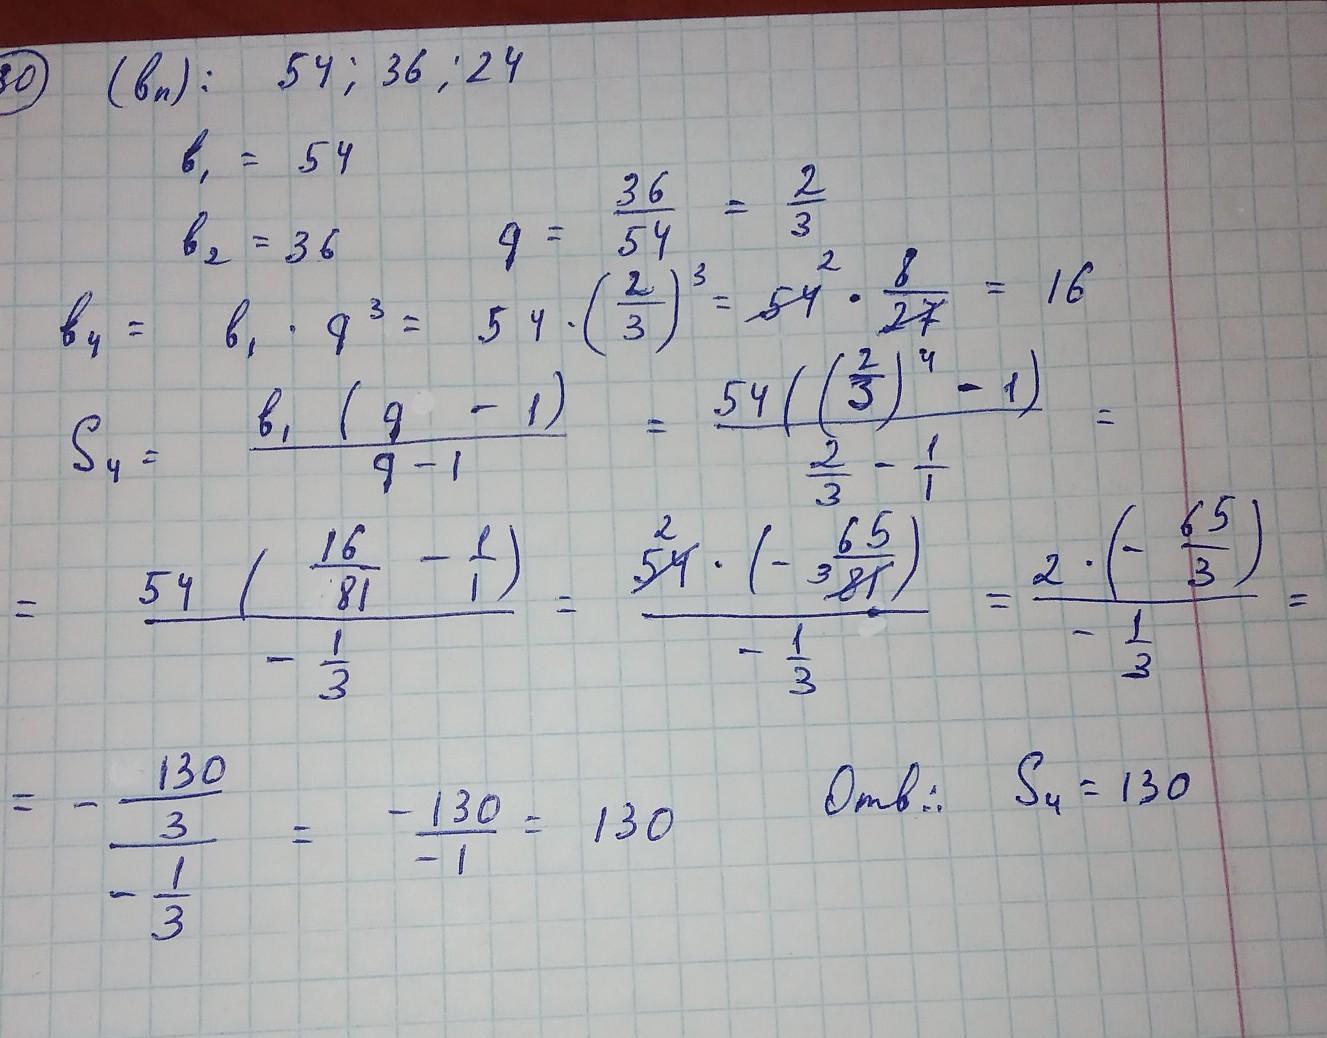 30 (bn): 54; 36; 24
b₁ = 54
b₂ = 36 q = 36/54 = 2/3
b₄ = b₁ · q³ = 54 · (2/3)³ = 54² · 8/27 = 16
S₄ = b₁ (q - 1) / q - 1 = 54((2/3)⁴ - 1) / 2/3 - 1/1 =
= 54 (16/81 - 1/1) / - 1/3 = 2 54 · (- 65/3 81) / - 1/3 = 2 · (- 65/3) / - 1/3 =
= - 130/3 / - 1/3 = -130/-1 = 130 Отв.: S₄ = 130